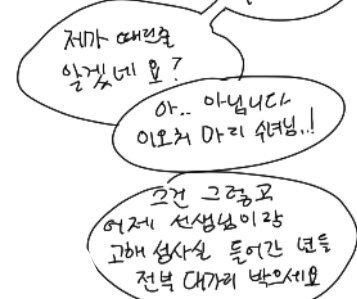 제가 때린줄
알겠네요?
아.. 아닙니다
이오치 마리 수녀님..!
그건 그렇고
어제 선생님이랑
고해 성사실 들어간 년들
전부 대가리 박으세요